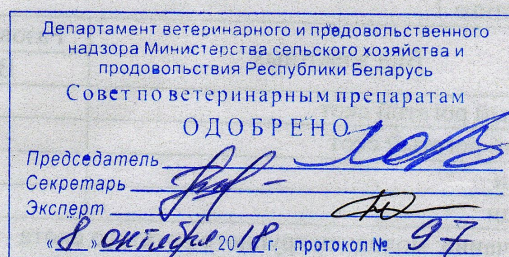 Департамент ветеринарного и продовольственного
надзора Министерства сельского хозяйства и
продовольствия Республики Беларусь
Совет по ветеринарным препаратам
ОДОБРЕНО
Председатель
Секретарь
Эксперт
«8» октября 2018г. протокол № 97